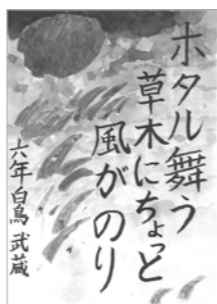 ホタル舞う
草木にちょっと
風がのり
六年 白鳥 武蔵